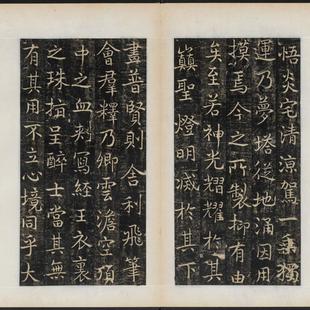 悟炎宅清涼駕一乘獨
運乃夢塔從地涌因用
摸焉今之所製抑有由
矣至若神光耀耀於其
巔聖燈明滅於其下
畫普賢則舍利飛筆
會羣釋乃卿雲澹空頂
中之血寫經王衣裏
之珠指呈醉士當其無
有其用不立心境同乎大